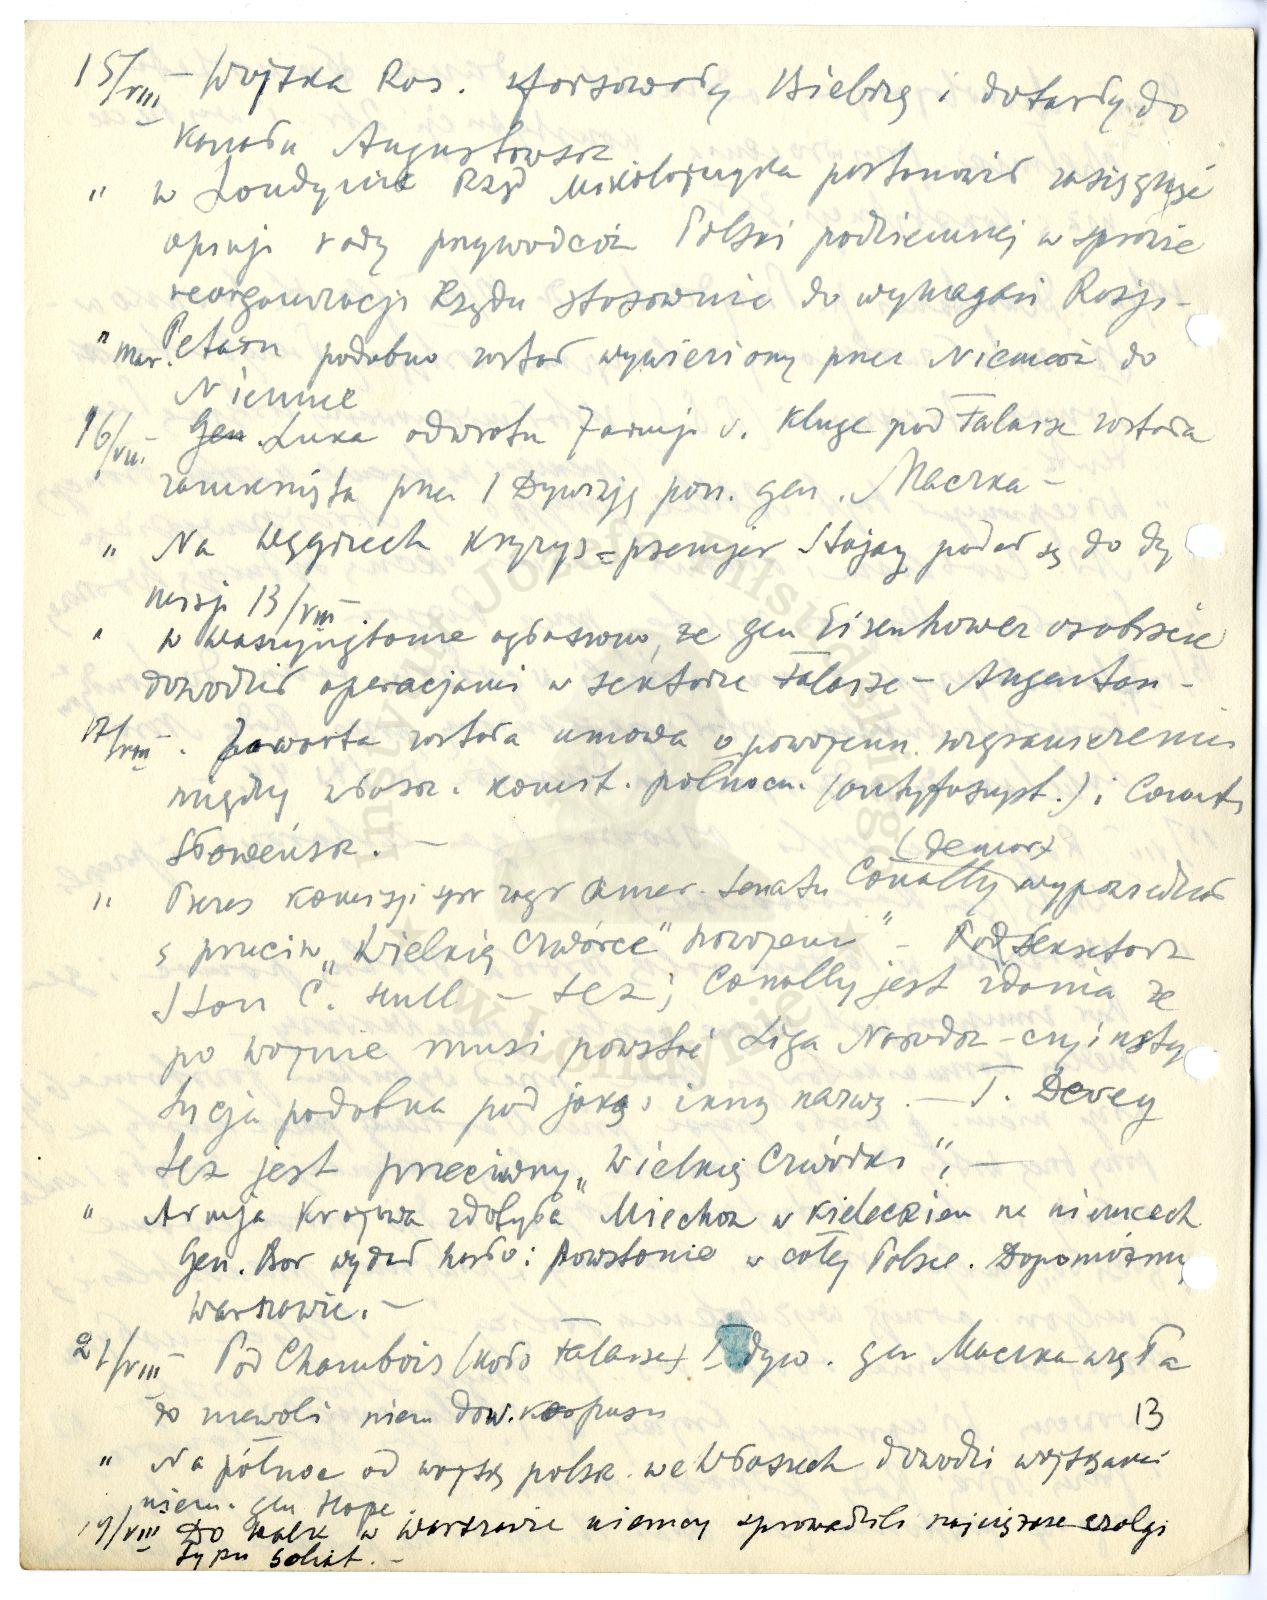 15/VIII – Wojska Ros. sforsowały Biebrzę i dotarły do
kanału Augustowsk
" w Londynie Rząd Mikołajczyka postanowił zasięgnąć
opinji rady przywódców Polski podziemnej w sprawie
reorganizacji Rządu stosownie do wymagań Rosji –
" Mar. Petain podobno został wywieziony przez Niemców do
Niemiec
16/VIII Gen Luka odwrotu 7 armji v. Kluge pod Falaise została
zamknięta przez 1 Dywizję pan. gen. Maczka –
" Na Węgrzech kryzys = premjer Stojay podał się do dy
misji 13/VIII
" w Waszyngtonie ogłoszono, że gen Eisenhower osobiście
dowodził operacjami w sektorze Falaise – Argentan –
17/VIII . Zawarta została umowa o powojenn.
między włosk. komit. północn. (antyfaszyst.) i Comit.
Słoweńsk. –
(demokr)
" Prezes komisji spr zagr amer. senatu Conolly wypowiedział
s przeciw „Wielkiej Czwórce" powojenn" – Sekretarz
Stan C. Hull – też; Conolly jest zdania że
po wojnie musi powstać Liga Narodów – czy insty
tucja podobna pod jakąś inną nazwą. – T. Dewey
też jest przeciwny „Wielkiej Czwórki"; –
" Armja Krajowa zdobyła Miechów w Kieleckiem na niemcach
Gen. Bor wydał hasło: Powstanie w całej Polsce. Dopomóżmy
Warszawie. –
21/VIII – Pod Chambois (koło Falaise) I dyw. gen Maczka wzięła
do niewoli niem dow. korpusu
13
" Na północ od wojsk polsk. we Włoszech dowodzi wojskami
niem. gen Hope.
19/VIII Do walk w Warszawie niemcy sprowadzili najcięższe czołgi
typu Goliat. –
Instytut Józefa Piłsudskiego
w Londynie